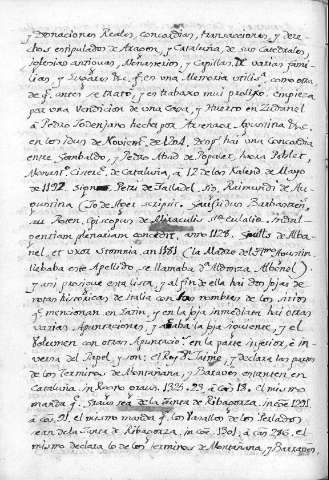 y Donaciones Reales, concordias, transacciones, y dere-
chos estipulados de Aragon, y Cataluña, de sus Catedrales,
Iglesias antiguas, Monasterios, y Capillas, de varias fami-
lias, y Lugares &c. q.e en una Memoria utilis.a como esta
de q.e antes se trató, y en trabaxo mui prolixo. empieza
por una Vendicion de una Casa, y Huerto en
à Pedro hecha por &c.
en los idus de Noviem.e de 1204. desp.s hai una Concordia
entre Gombaldo, y Pedro Abad de Populet, hoera Poblet,
Monast.o Cister.e de Cataluña, à 12 de las Kalend. de Mayo
de 1192. sign Petri de Talladel, sig. Raimundi de
(Jo de Ager scripsit. Gaufridus Barbastren,
sive Roten. Episcopus de Miraculis S.te Eulalie, indul-
gentiam plenariam concedit, año 1128.
nel, et uxor año 1181 (la Madre del Ill.mo Agustin
llebaba este Apellido, se llamaba D.a Aldonza Albanel).
y asi prosigue esta lista, y al fin de ella hai dos hojas de
notas historicas de Italia con los nombres de los sitios
q.e mencionan en Latin, y en la hoja inmediata hai otras
varias Apuntaciones, y acaba la hoja siguiente, y el
Volumen con otras Apuntacio.s en la parte inferior, è in-
versa del Papel, y son: el Rey D.n Jaime, y declara las partes
de los terminos de Montañana, y Baraves estan en
Cataluña. in Regno 1325. 23, à cas 18. el mismo
manda q.e Graus sea de la Junta de Ribagorza, in Gre 1391
à cas. 91. el mismo manda q.e los Vasallos de los Perlados
sean de la Junta de Ribagorza, in Gre. 1301. à cas 216. el
mismo declara lo de los terminos de Montañana, y Baraves